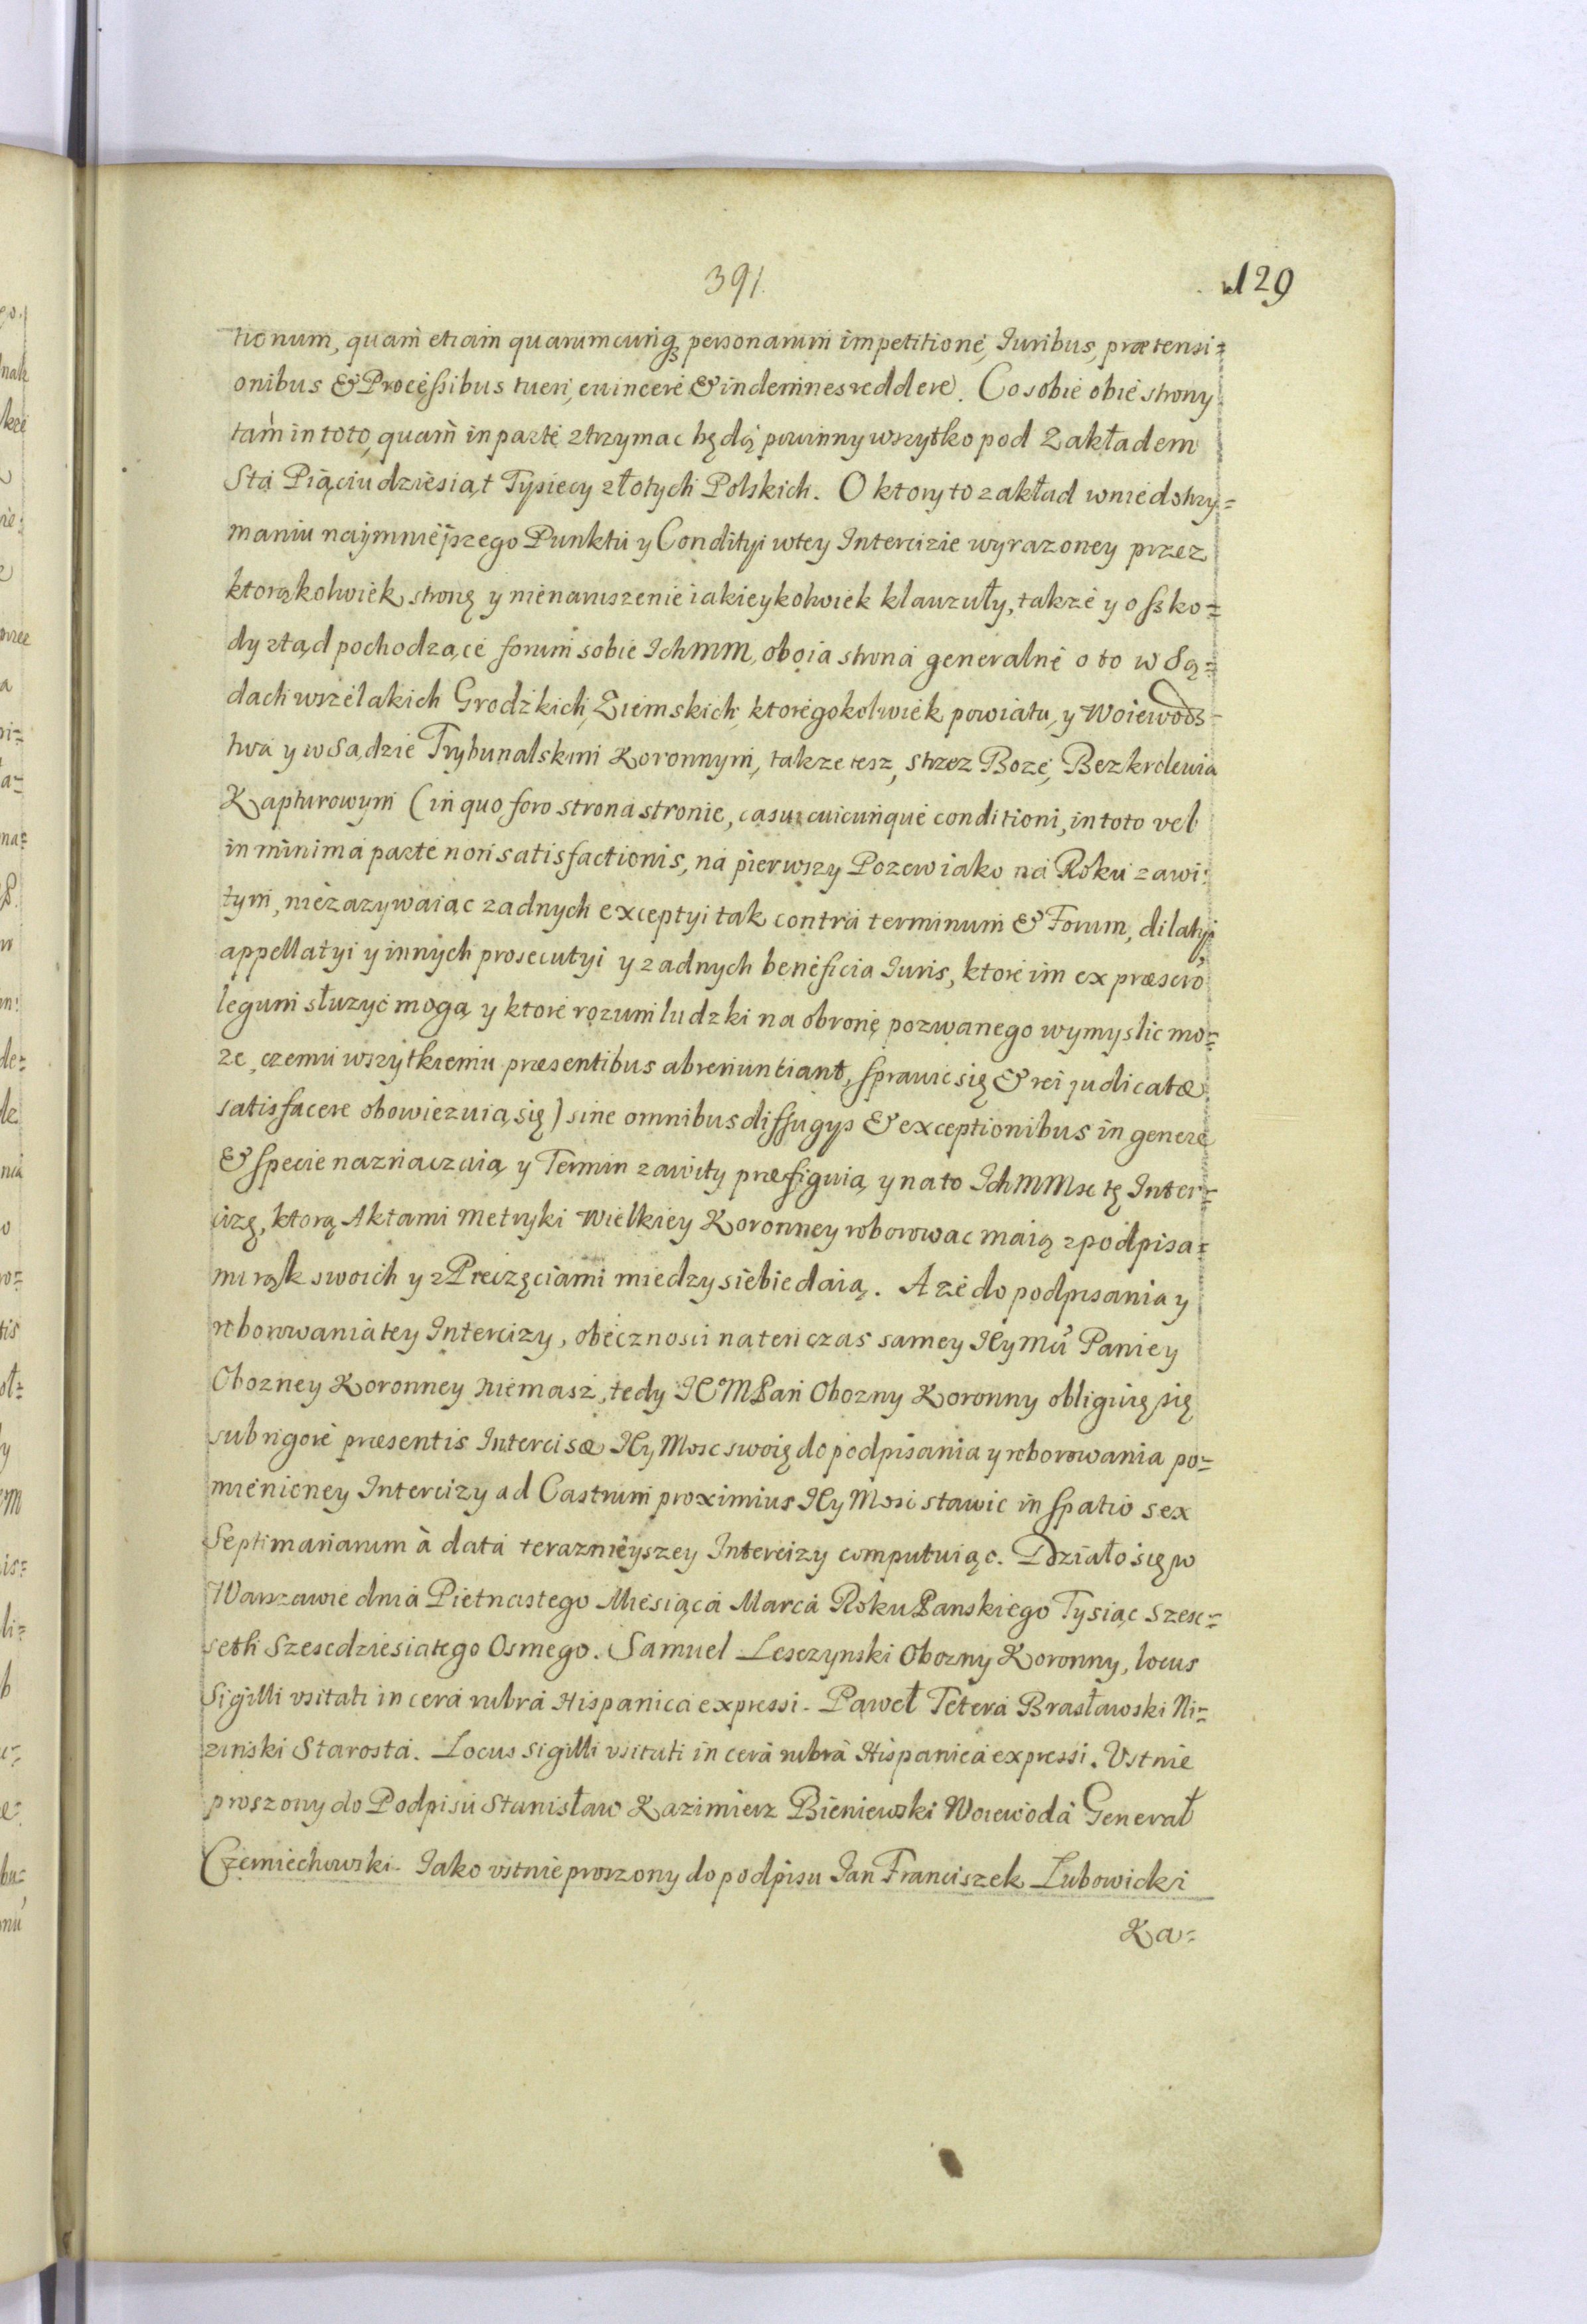 391.
129
tionum, quam etiam quarumcunqs personarum impetitione, Iuribus, prætensi=
onibus & Processibus tueri, euincere & indemnes reddere. Co sobie obie strony
tam in toto, quam in parte ztrzymac będą powinny wszytko pod Zakładem
Sta Piąciudziesiąt Tysiecy złotych Polskich. O ktory to zakład wniedotrzy=
maniu naymnieyszego Punktu y Condityi wtey Intercizie wyrazoney przez
ktorąkolwiek stronę y nienaruszenie iakieykolwiek klauzuły, takze y o szko=
dy ztąd pochodzące forum sobie Ich MM, oboia strona generalne o to w Są=
dach wszelakich Grodzkich, Ziemskich, ktoregokolwiek powiatu, y Woiewods=
twa y w Sądzie Trybunalskim Koronnym, takze tesz, strzez Boze, Bezkrolewia
Kapturowym (in quo foro strona stronie, casu cuicunque conditioni, in toto vel
in minima parte non satisfactionis, na pierwszy Pozew iako na Roku zawi:
tym, niezazywaiąc zadnych exceptyi tak contra terminum & Forum, dilatyi
appellatyi y innych prosecutyi y zadnych beneficia Iuris, ktore im ex præscro
legum słuzyć mogą y ktore rozum ludzki na obronę pozwanego wymyslic mo=
ze, czemu wszytkiemu præsentibus abrenuntiant, sprawic się & rei judicatæ
satisfacere obowiezuią się) sine omnibus diffugys & exceptionibus in genere
& specie naznaczaią y Termin zawity præfiguią y na to Ich MMsc tę Inter=
cizę, ktorą Aktami Metryki Wielkiey Koronney roborowac maią z podpisa=
mi rąk swoich y z Pieczęciami miedzy siebie daią. A ze do podpisania y
roborowania tey Intercizy, obecznosci na ten czas samey Iey Mci Paniey
Obozney Koronney niemasz, tedy IE° M Pan Obozny Koronny obliguię się
sub rigore præsentis Intercisæ Iey Mosc swoię do podpisania y roborowania po=
mienioney Intercizy ad Castrum proximius Iey Mosci stawic in spatio sex
Septimanarum à data teraznieyszey Intercizy computuiąc. Działo się w
Warszawie dnia Pietnastego Miesiąca Marca Roku Panskiego Tysiąc szesc=
seth Szescdziesiatego Osmego. Samuel Lesczynski Obozny Koronny, locus
Sigilli vsitati in cera rubra Hispanica expressi. Paweł Tetera Brasławski Ni=
zinski Starosta. Locus sigilli vsitati in cera rubra Hispanica expressi. Vstnie
proszony do Podpisu Stanisław Kazimierz Bieniewski Woiewoda Generał
Czerniechowski. Iako vstnie proszony do podpisu Ian Franciszek Lubowicki
Ka=